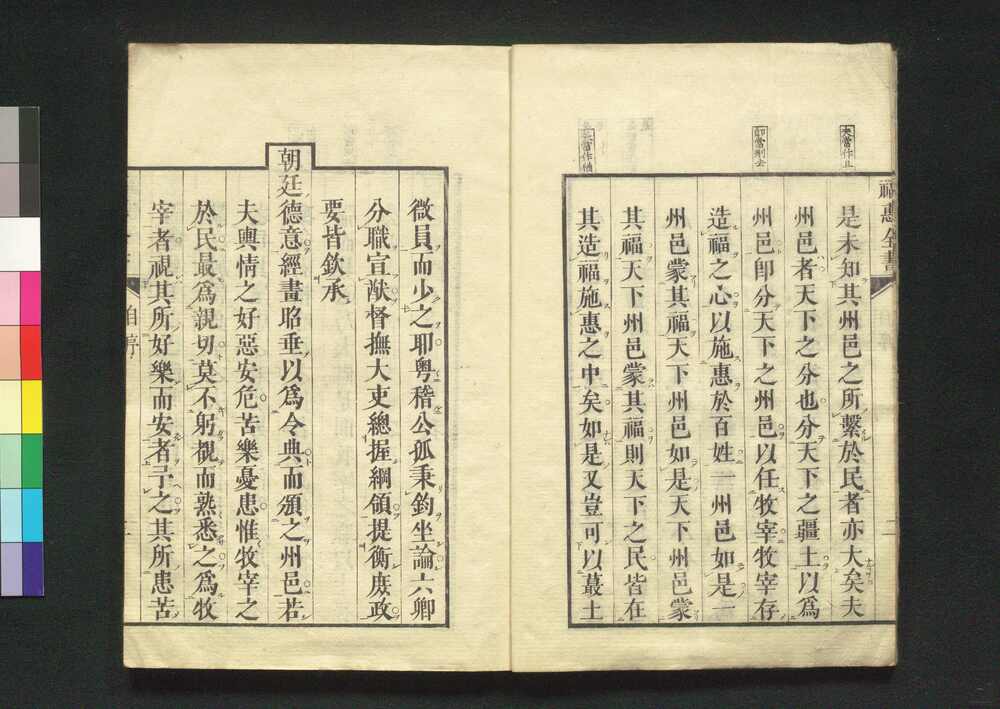 卽當刪去
福惠全書
是未知其州邑之所繫於民者亦大矣夫
州邑者天下之分也分天下之疆土以爲
州邑卽分天下之州邑以任牧宰牧宰存
造福之心以施惠於百姓一州邑如是一
州邑蒙其福天下州邑如是天下州邑蒙
其福天下州邑蒙其福則天下之民皆在
其造福施惠之中矣如是又豈可以蕞土
微員而少之耶粤稽公孤秉鈞坐論六卿
分職宣猷督撫大吏總握綱領提衡庶政
要皆欽承
朝廷德意經畫昭垂以爲令典而頒之州邑若
夫輿情之好惡安危苦樂憂患惟牧宰之
於民最爲親切莫不躬覩而熟悉之爲牧
宰者視其所好樂而安者予之其所患苦
自序